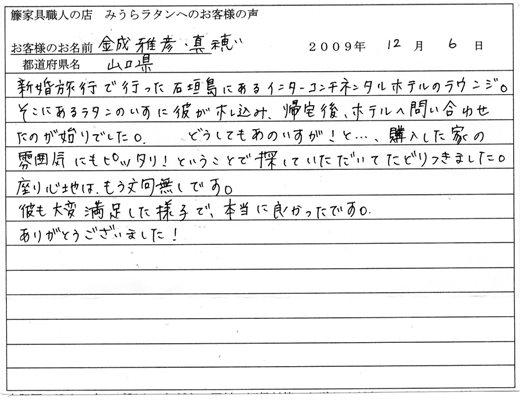 籐家具職人の店　みうらラタンへのお客様の声
お客様のお名前　金成雅彦・真穂　2009年 12 月 6 日
都道府県名　山口県
新婚旅行で行った石垣島にあるインターコンチネンタルホテルのラウンジ。
そこにあるラタンのいすに彼がホレ込み、帰宅後、ホテルへ問い合わせ
たのが始りでした。　どうしてもあのいすが！と…、購入した家の
雰囲気にもピッタリ！ということで探していただいてたどりつきました。
座り心地は、もう文句無しです。
彼も大変満足した様子で、本当に良かったです。
ありがとうございました！